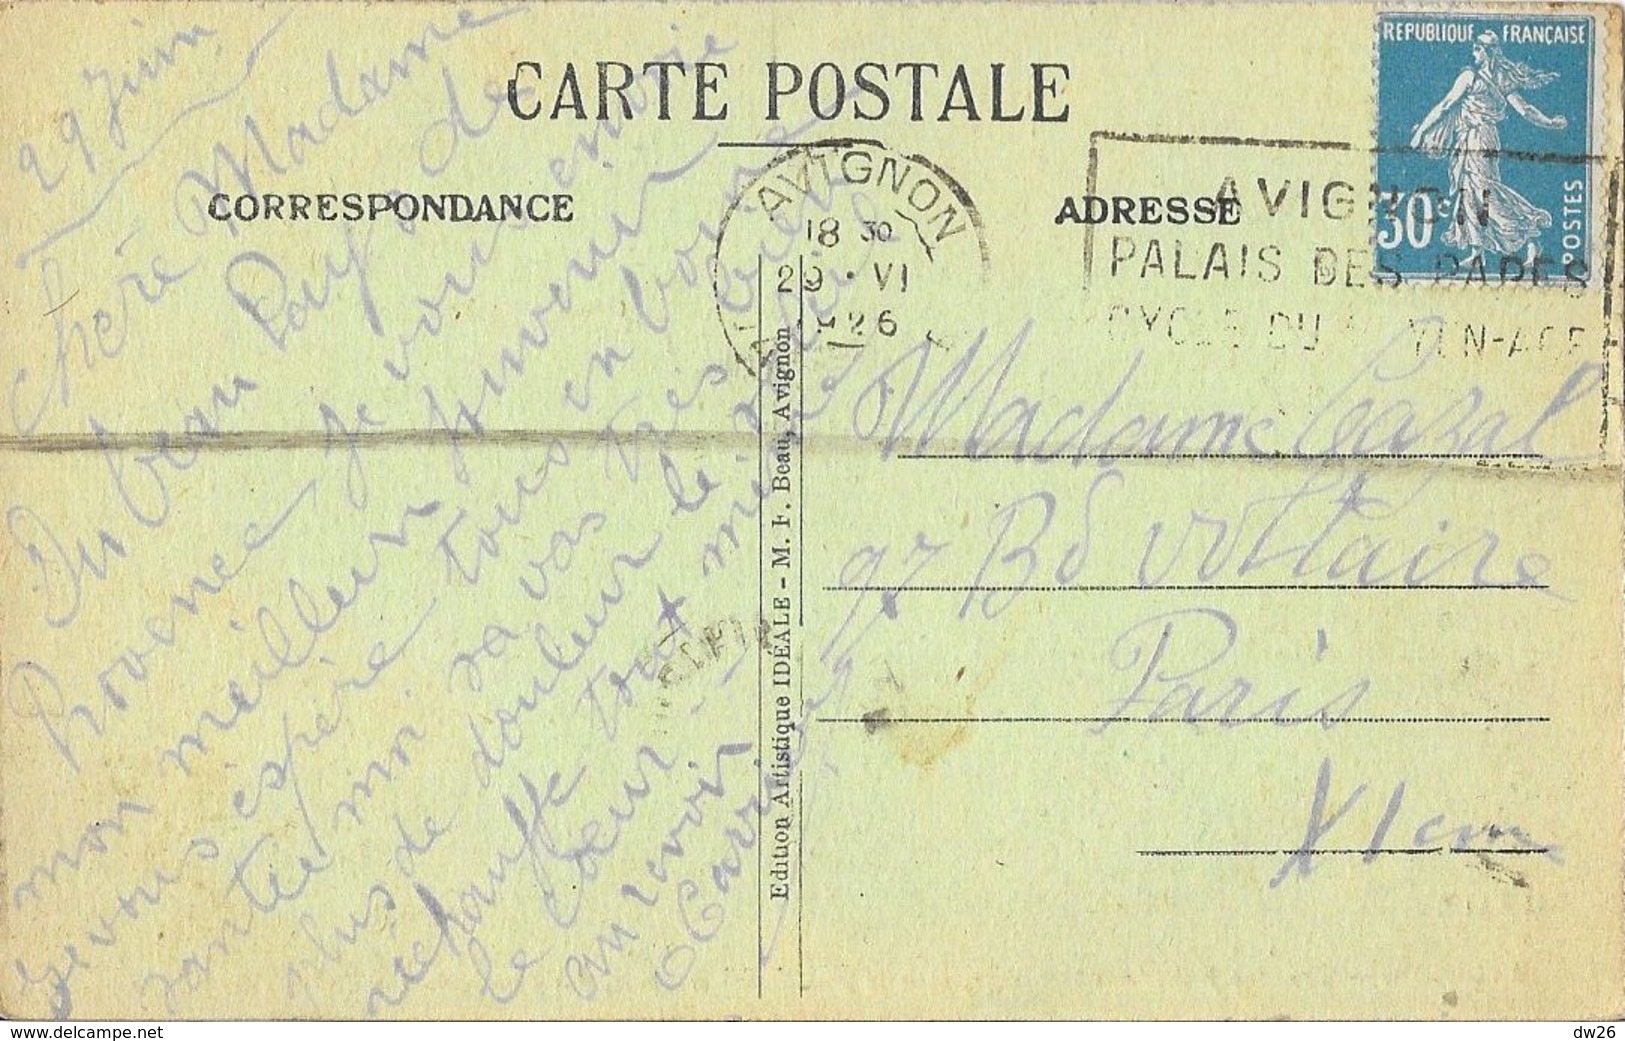 CARTE POSTALE
CORRESPONDANCE
ADRESSE
REPUBLIQUE FRANÇAISE
30c
POSTES
AVIGNON
18 30
29 · VI
26
AVIGNON
PALAIS DES PAPES
CYCLE DU YEN-AGE
Edition Artistique IDÉALE - M. F. Beau, Avignon
29 Juin
Chère Madame
Du beau Pays de
Provence je vous envoie
mon meilleur souvenir
Je vous espère tous en bonne
santé moi sa va très bien
plus de douleur le soleil
réchauffe tout même
le coeur
au revoir
Carrier
Madame Cazal
97 Bd Voltaire
Paris
XIem
delcampe.net
dw26